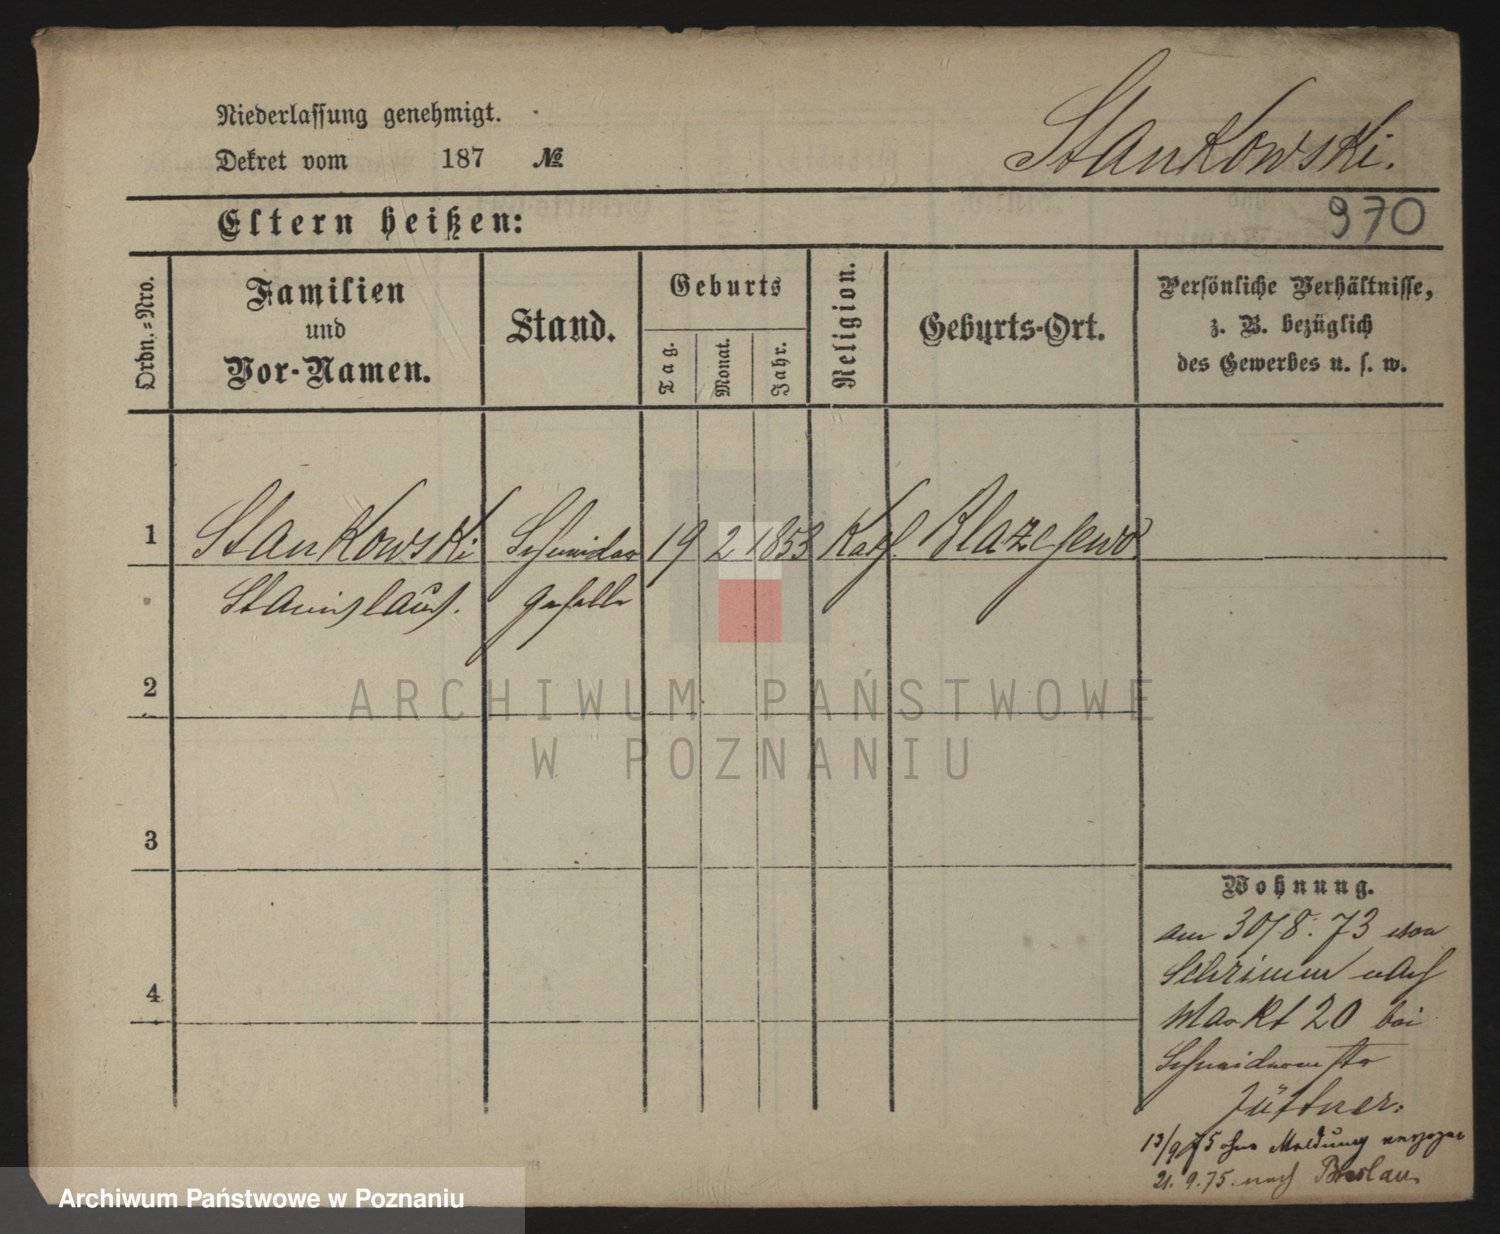 Niederlassung genehmigt.
Dekret vom 187 №
Stankowski.
Eltern heißen:
970
Ordn.-Nro.
Familien
und
Vor-Namen.
Stand.
Geburts
Tag.
Monat.
Jahr.
Religion.
Geburts-Ort.
Persönliche Verhältnisse,
z. B. bezüglich
des Gewerbes u. s. w.
1 Stankowski Schneider 19 2 1853 Kath. Blazejewo
Stanislaus. geselle
2
3
4
Wohnung.
am 30/8. 73 von
Schrimm nach
Markt 20 bei
Schneidermstr
Jüttner.
13/9 75 ohne Meldung verzogen
21. 9. 75. nach Breslau
ARCHIWUM PAŃSTWOWE
W POZNANIU
Archiwum Państwowe w Poznaniu